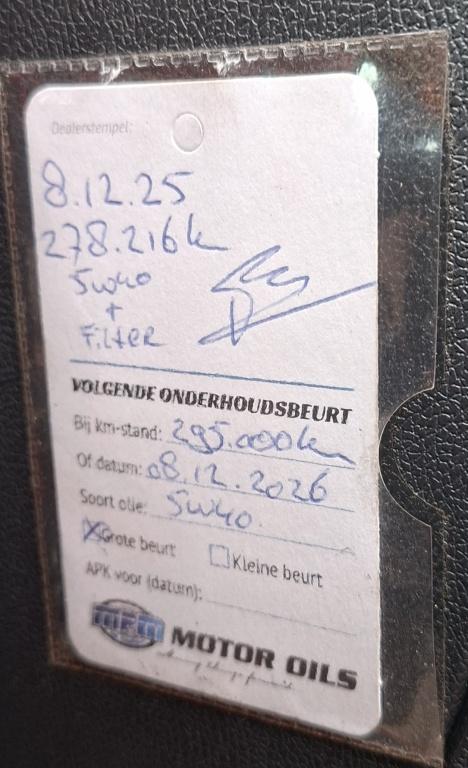 Dealerstempel:
8.12.25
278.216 k
5w40
+
Filter
VOLGENDE ONDERHOUDSBEURT
Bij km-stand: 295.000km
Of datum: 08.12.2026
Soort olie: 5w40.
Grote beurt Kleine beurt
APK voor (datum):
MPM MOTOR OILS